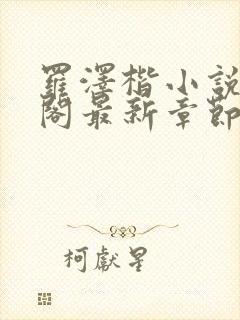 羅澤楷小説
閣最新章節
柯獻星